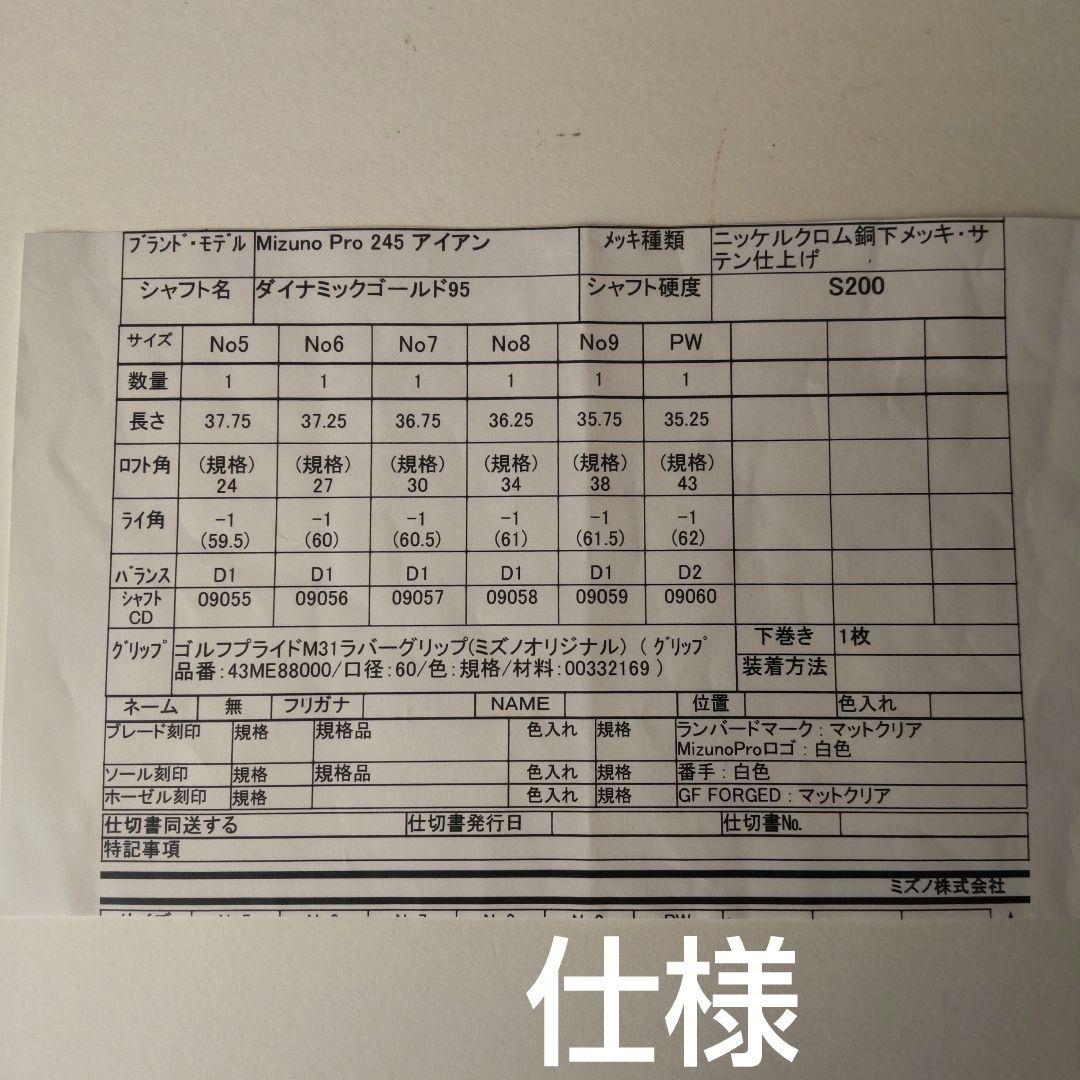 ブランド・モデル Mizuno Pro 245 アイアン メッキ種類 ニッケルクロム銅下メッキ・サ
テン仕上げ
シャフト名 ダイナミックゴールド95 シャフト硬度 S200
サイズ No5 No6 No7 No8 No9 PW
数量 1 1 1 1 1 1
長さ 37.75 37.25 36.75 36.25 35.75 35.25
ロフト角 (規格) (規格) (規格) (規格) (規格) (規格)
24 27 30 34 38 43
ライ角 -1 -1 -1 -1 -1 -1
(59.5) (60) (60.5) (61) (61.5) (62)
バランス D1 D1 D1 D1 D1 D2
シャフト 09055 09056 09057 09058 09059 09060
CD
グリップ ゴルフプライドM31ラバーグリップ(ミズノオリジナル) ( グリップ 下巻き 1枚
品番:43ME88000/口径:60/色:規格/材料:00332169 ) 装着方法
ネーム 無 フリガナ NAME 位置 色入れ
ブレード刻印 規格 規格品 色入れ 規格 ランバードマーク:マットクリア
MizunoProロゴ:白色
ソール刻印 規格 規格品 色入れ 規格 番手:白色
ホーゼル刻印 規格 色入れ 規格 GF FORGED:マットクリア
仕切書同送する 仕切書発行日 仕切書No.
特記事項
ミズノ株式会社
仕様